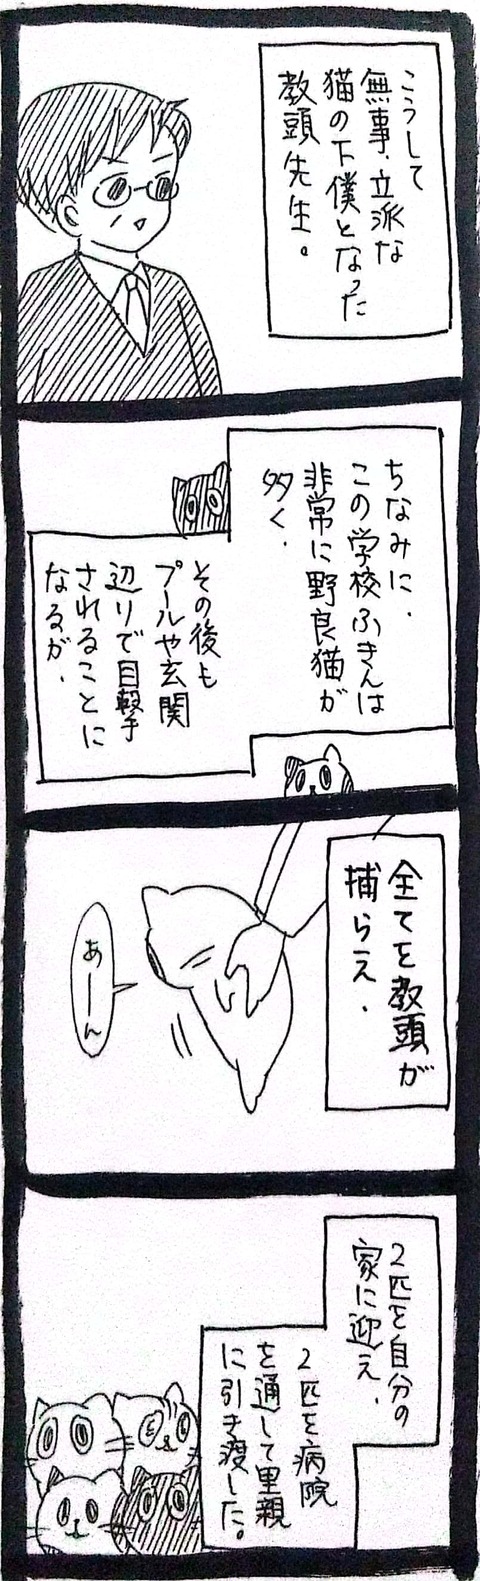 こうして
無事、立派な
猫の下僕となった
教頭先生。
ちなみに、
この学校ふきんは
非常に野良猫が
多く、
その後も
プールや玄関
辺りで目撃
されることに
なるが、
全てを教頭が
捕らえ、
あーん
2匹を自分の
家に迎え、
2匹を病院
を通して里親
に引き渡した。